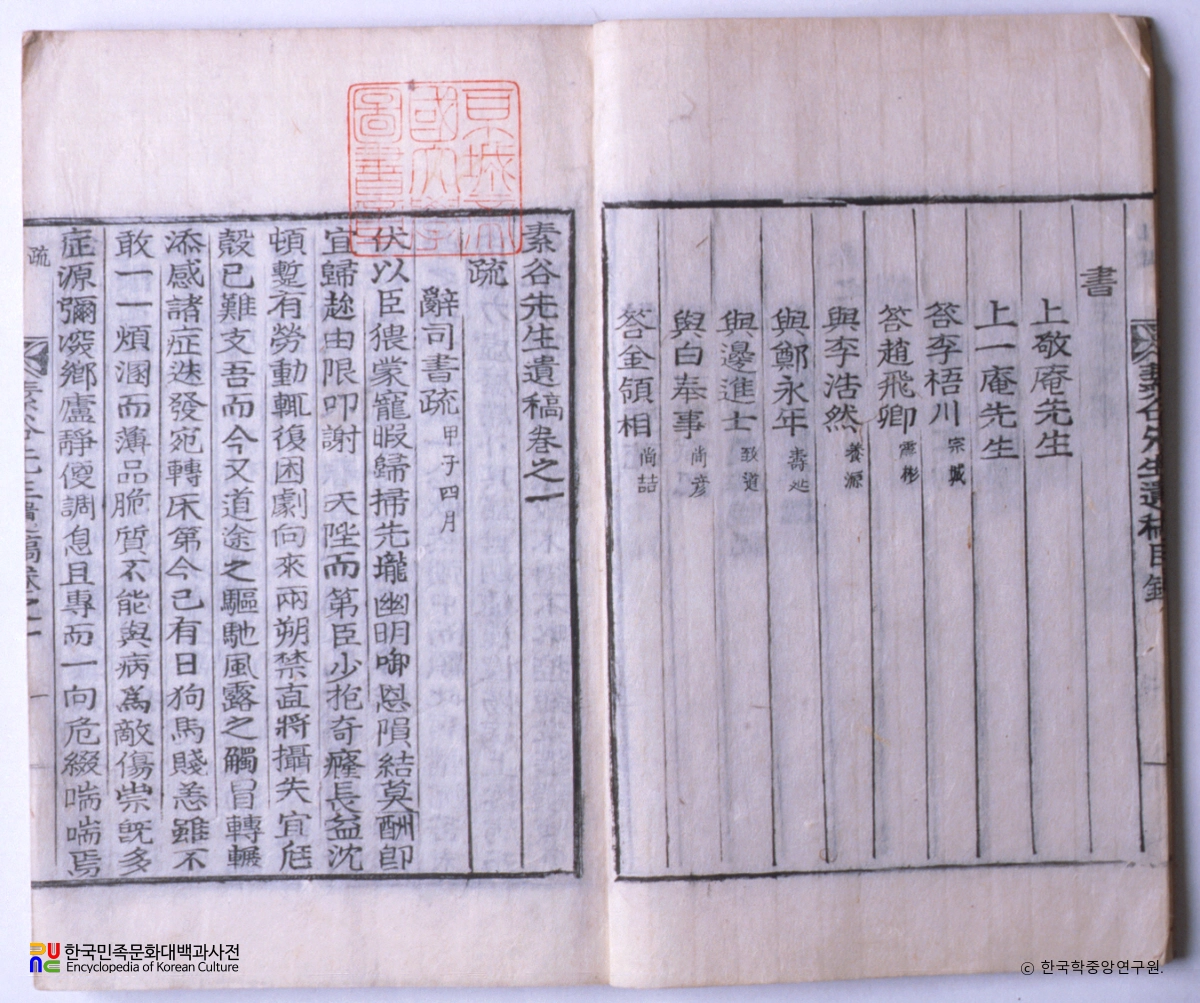 書
上敬庵先生
上一庵先生
答李梧川 宗城
答趙飛卿 震彬
與李浩然 養源
與鄭永年 壽延
與邊進士 致道
與白奉事 尚彦
答金領相 尚喆
素谷先生遺稿卷之一
疏
辭司書疏 甲子四月
伏以臣猥蒙寵暇歸掃先壠幽明啣恩隕結莫酬卽
宜歸趁由限叩謝 天陛而第臣少抱奇癃長益沈
頓蹔有勞動輒復困劇向來兩朔禁直將攝失宜尫
殼已難支吾而今又道途之驅馳風露之觸冒轉輾
添感諸症迭發宛轉床第今已有日狗馬賤恙雖不
敢一一煩溷而薄品脆質不能與病爲敵傷祟旣多
症源彌深鄉廬靜便調息且專而一向危綴喘喘焉
疏
素谷先生遺稿卷之一
一
京城帝國大學圖書章
한국민족문화대백과사전
Encyclopedia of Korean Culture
© 한국학중앙연구원.